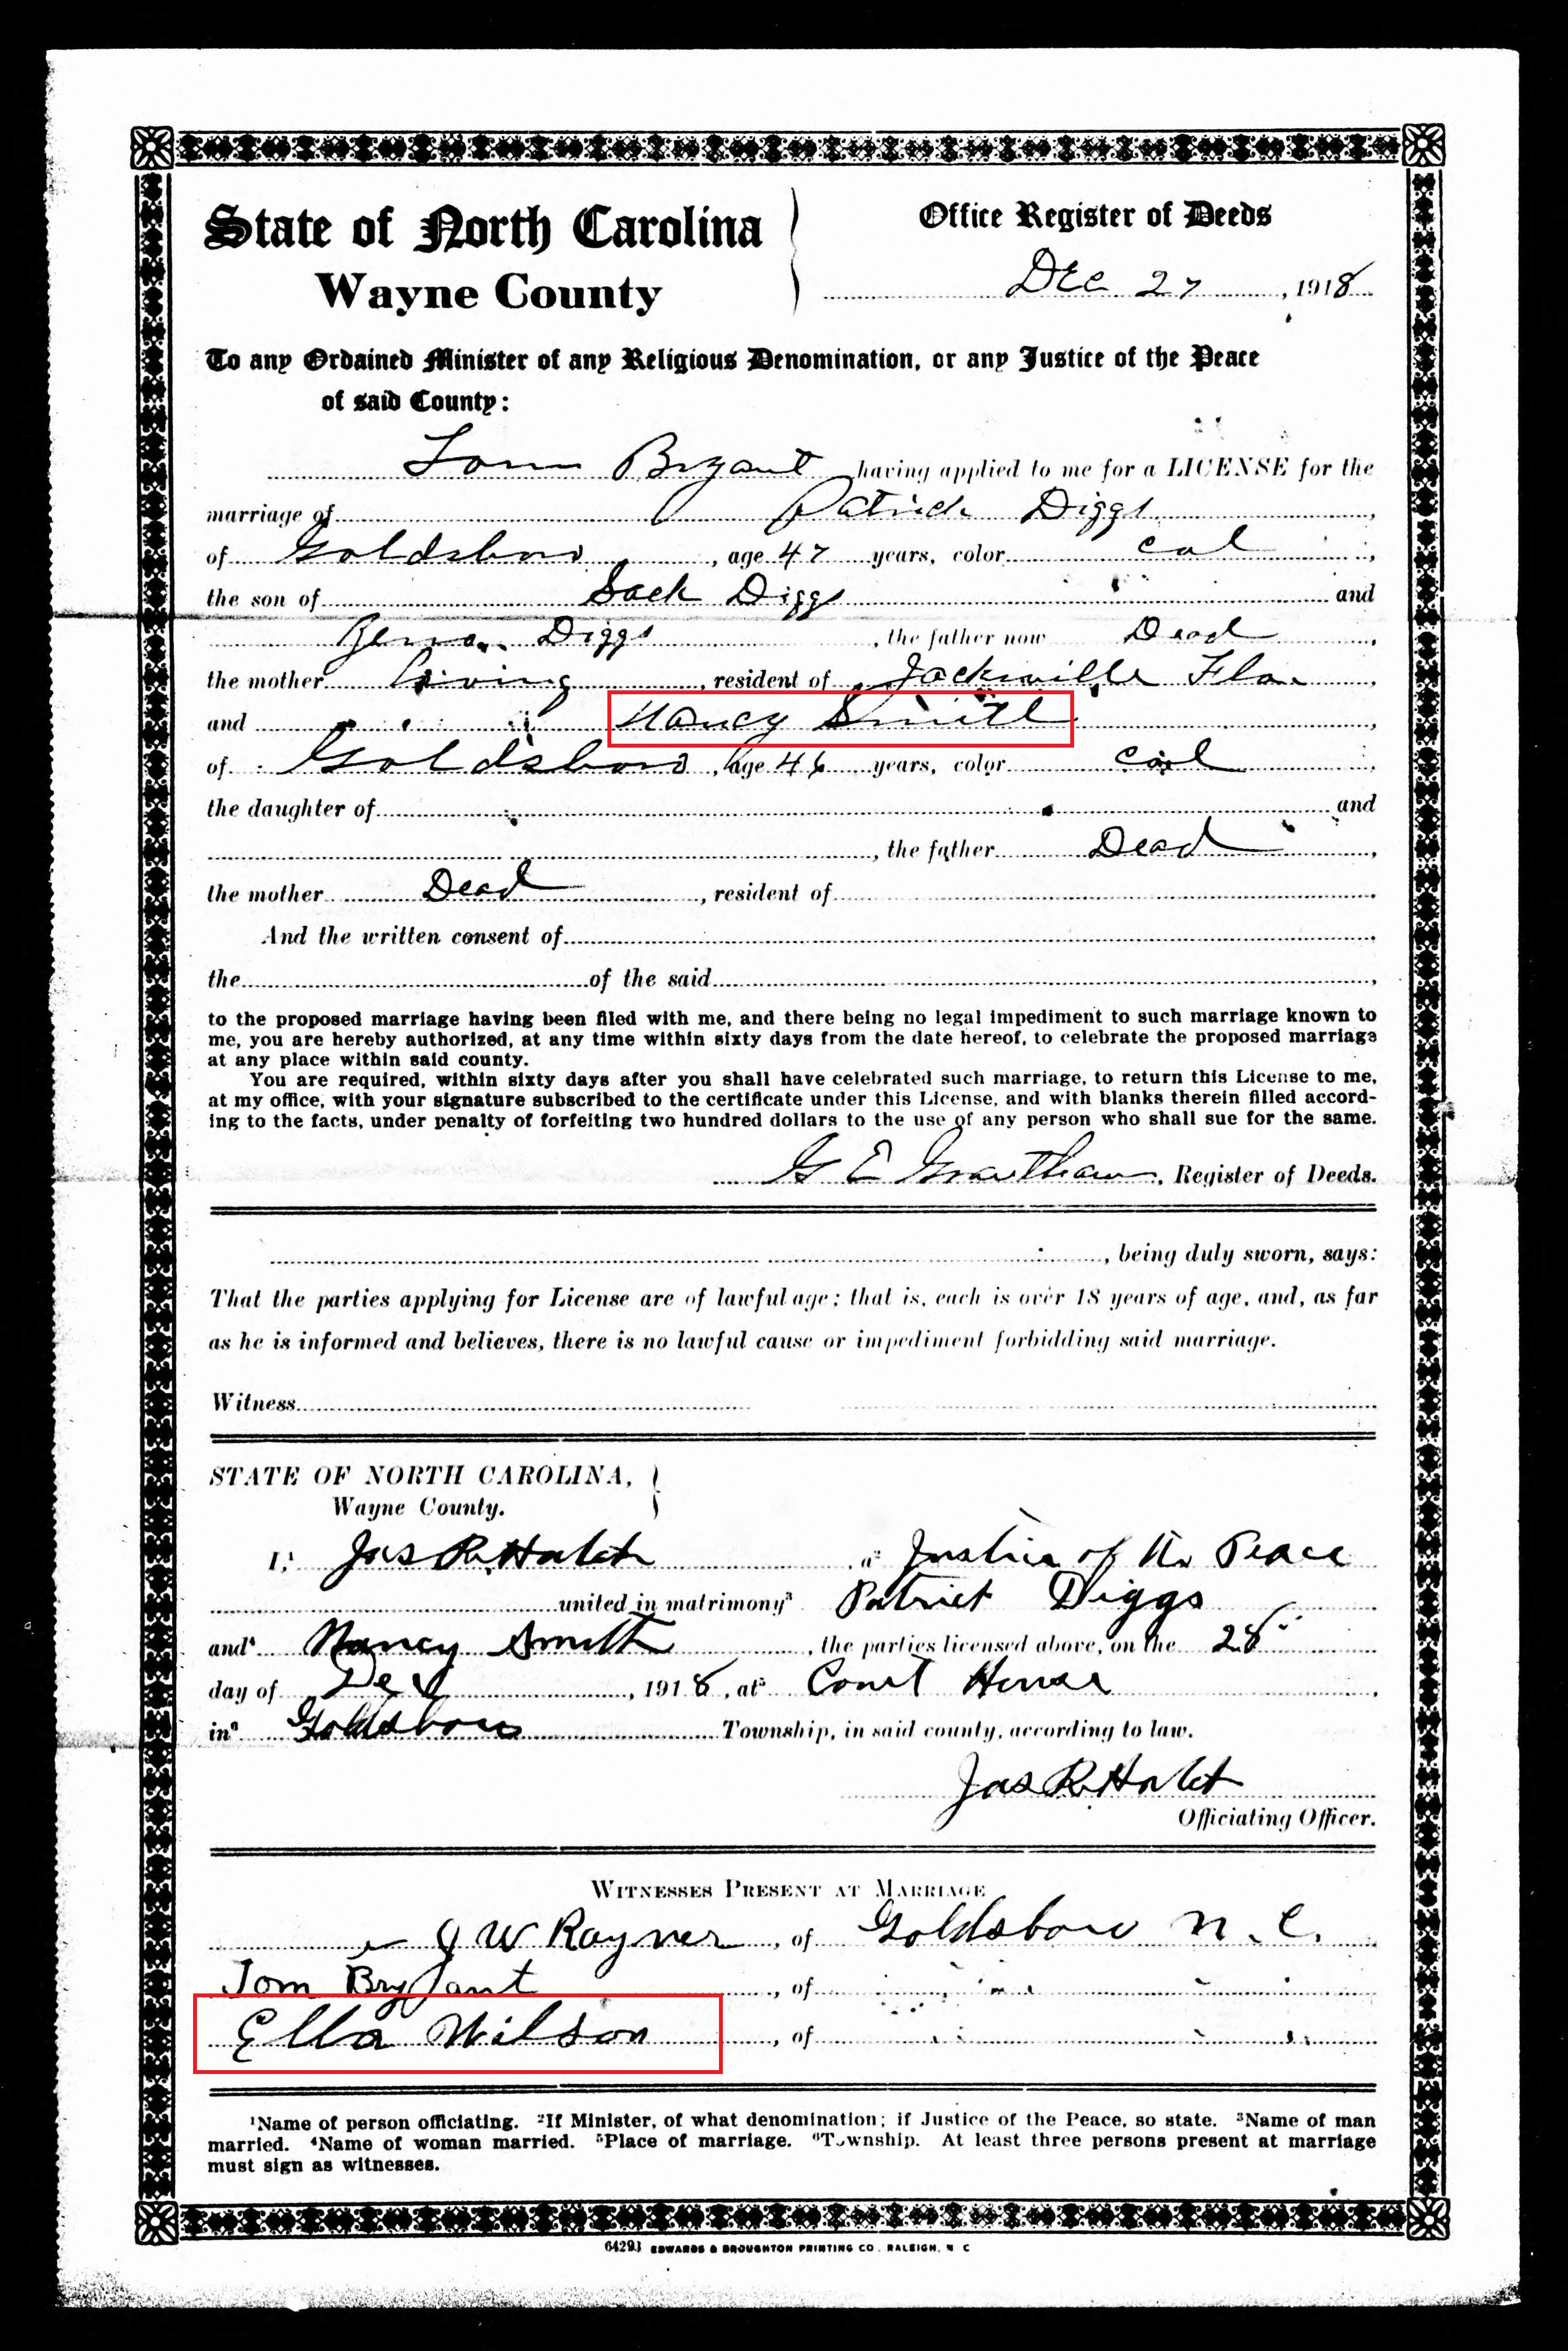 State of North Carolina
Wayne County
Office Register of Deeds
Dec 27, 1918
To any Ordained Minister of any Religious Denomination, or any Justice of the Peace
of said County:
Tom Bryant having applied to me for a LICENSE for the
marriage of Patrick Diggs,
of Goldsboro, age 47 years, color col,
the son of Sack Diggs and
Diggs, the father now Dead,
the mother Living, resident of Jacksville Fla,
and Nancy Smith,
of Goldsboro, age 46 years, color col,
the daughter of and
, the father Dead,
the mother Dead, resident of
And the written consent of
the of the said,
to the proposed marriage having been filed with me, and there being no legal impediment to such marriage known to
me, you are hereby authorized, at any time within sixty days from the date hereof, to celebrate the proposed marriage
at any place within said county.
You are required, within sixty days after you shall have celebrated such marriage, to return this License to me,
at my office, with your signature subscribed to the certificate under this License, and with blanks therein filled accord-
ing to the facts, under penalty of forfeiting two hundred dollars to the use of any person who shall sue for the same.
G E Grantham, Register of Deeds.
, being duly sworn, says:
That the parties applying for License are of lawful age; that is, each is over 18 years of age, and, as far
as he is informed and believes, there is no lawful cause or impediment forbidding said marriage.
Witness
STATE OF NORTH CAROLINA,
Wayne County.
I,¹ Jas R, a² Justice of the Peace
united in matrimony³ Patrick Diggs
and⁴ Nancy Smith, the parties licensed above, on the 28
day of Dec, 1918, at⁵ Court House,
in⁶ Goldsboro Township, in said county, according to law.
Jas R
Officiating Officer.
WITNESSES PRESENT AT MARRIAGE
J W Rayner, of Goldsboro N. C.
Tom Bryant, of
Ella Wilson, of
¹Name of person officiating. ²If Minister, of what denomination; if Justice of the Peace, so state. ³Name of man
married. ⁴Name of woman married. ⁵Place of marriage. ⁶Township. At least three persons present at marriage
must sign as witnesses.
64293 EDWARDS & BROUGHTON PRINTING CO. RALEIGH, N C